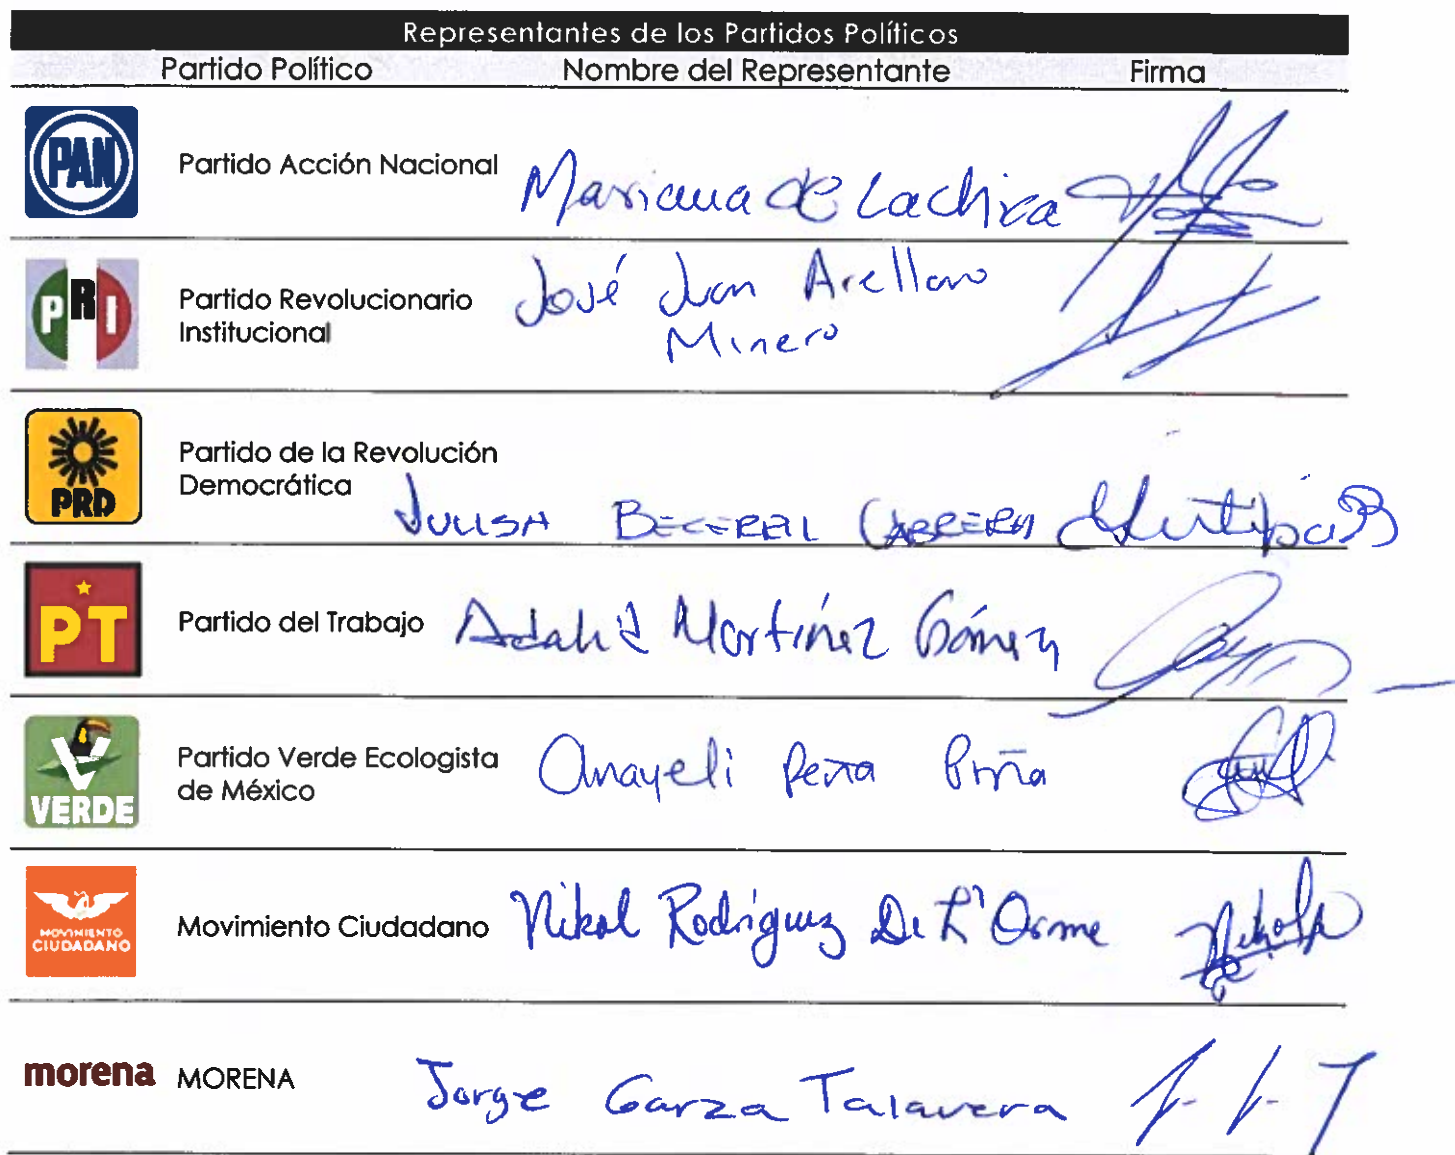 Representantes de los Partidos Políticos
Partido Político Nombre del Representante Firma
PAN
Partido Acción Nacional Mariana de Lachica
PRI
Partido Revolucionario
Institucional
José Juan Arellano
Minero
PRD
Partido de la Revolución
Democrática
Julisa Becerril Cabrera
PT
Partido del Trabajo Adahid Martínez Gómez
VERDE
Partido Verde Ecologista
de México
Anayeli Peña Piña
MOVIMIENTO
CIUDADANO
Movimiento Ciudadano Nikol Rodríguez De L'Orme
morena MORENA Jorge Garza Talavera